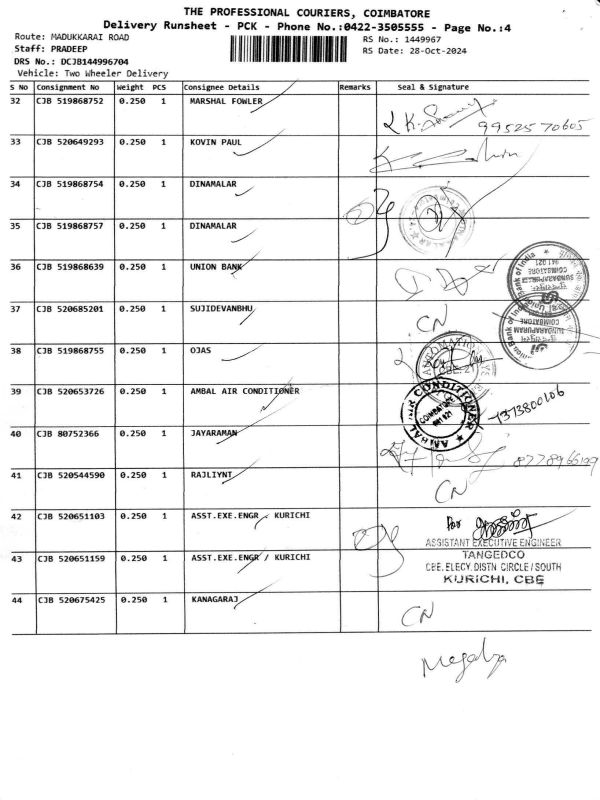 THE PROFESSIONAL COURIERS, COIMBATORE
Delivery Runsheet - PCK - Phone No.:0422-3505555 - Page No.:4
Route: MADUKKARAI ROAD
RS No.: 1449967
Staff: PRADEEP
RS Date: 28-Oct-2024
DRS No.: DCJB144996704
Vehicle: Two Wheeler Delivery
S No Consignment No Weight PCS Consignee Details Remarks Seal & Signature
32 CJB 519868752 0.250 1 MARSHAL FOWLER
9952570605
33 CJB 520649293 0.250 1 KOVIN PAUL
34 CJB 519868754 0.250 1 DINAMALAR
35 CJB 519868757 0.250 1 DINAMALAR
36 CJB 519868639 0.250 1 UNION BANK
Union Bank of India
SUNDARAPURAM
COIMBATORE
641 021
37 CJB 520685201 0.250 1 SUJIDEVANBHU
CN
Union Bank of India
SUNDARAPURAM
COIMBATORE
38 CJB 519868755 0.250 1 OJAS
CBE-21
39 CJB 520653726 0.250 1 AMBAL AIR CONDITIONER
AMBAL AIR CONDITIONER
COIMBATORE
641 021
7373800106
40 CJB 80752366 0.250 1 JAYARAMAN
41 CJB 520544590 0.250 1 RAJLIYNT
CN
42 CJB 520651103 0.250 1 ASST.EXE.ENGR / KURICHI
for
ASSISTANT EXECUTIVE ENGINEER
43 CJB 520651159 0.250 1 ASST.EXE.ENGR / KURICHI
TANGEDCO
CBE. ELECY. DISTN. CIRCLE / SOUTH
KURICHI, CBE
44 CJB 520675425 0.250 1 KANAGARAJ
CN